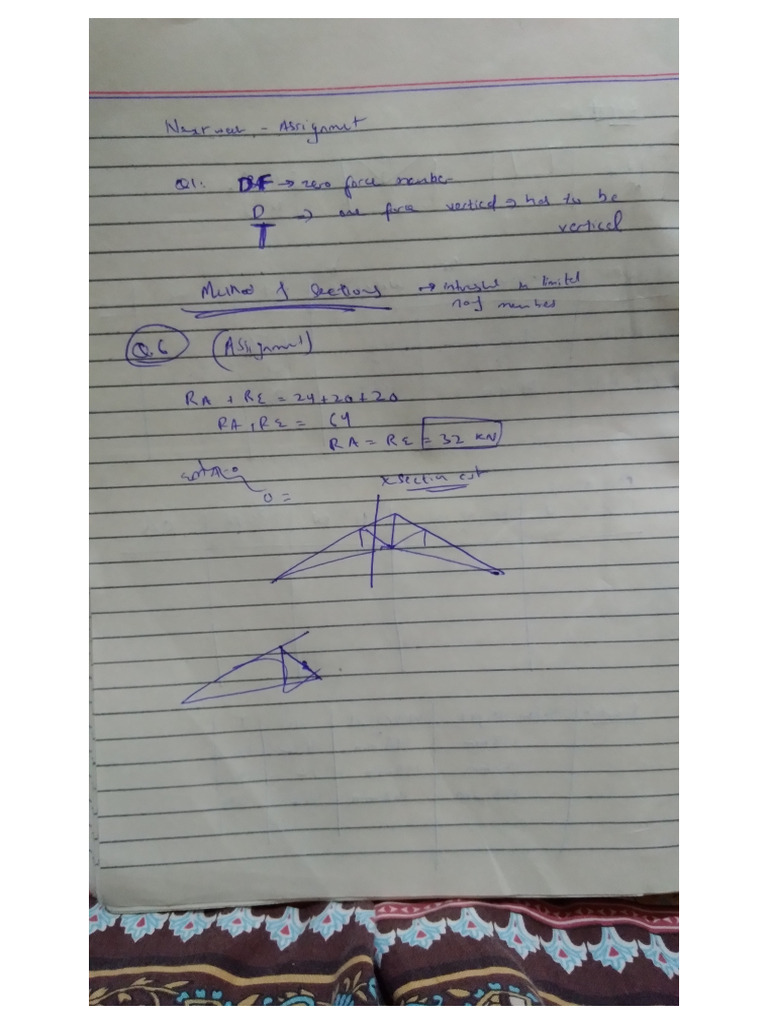 Next week - Assignment
Q1: BF → zero force member
D → one force vertical → has to be
vertical
Method of sections → interested in limited
no of member
Q.6 (Assignment)
RA + RE = 24+20+20
RA + RE = 64
RA = RE = 32 KN
0 =
x section cut